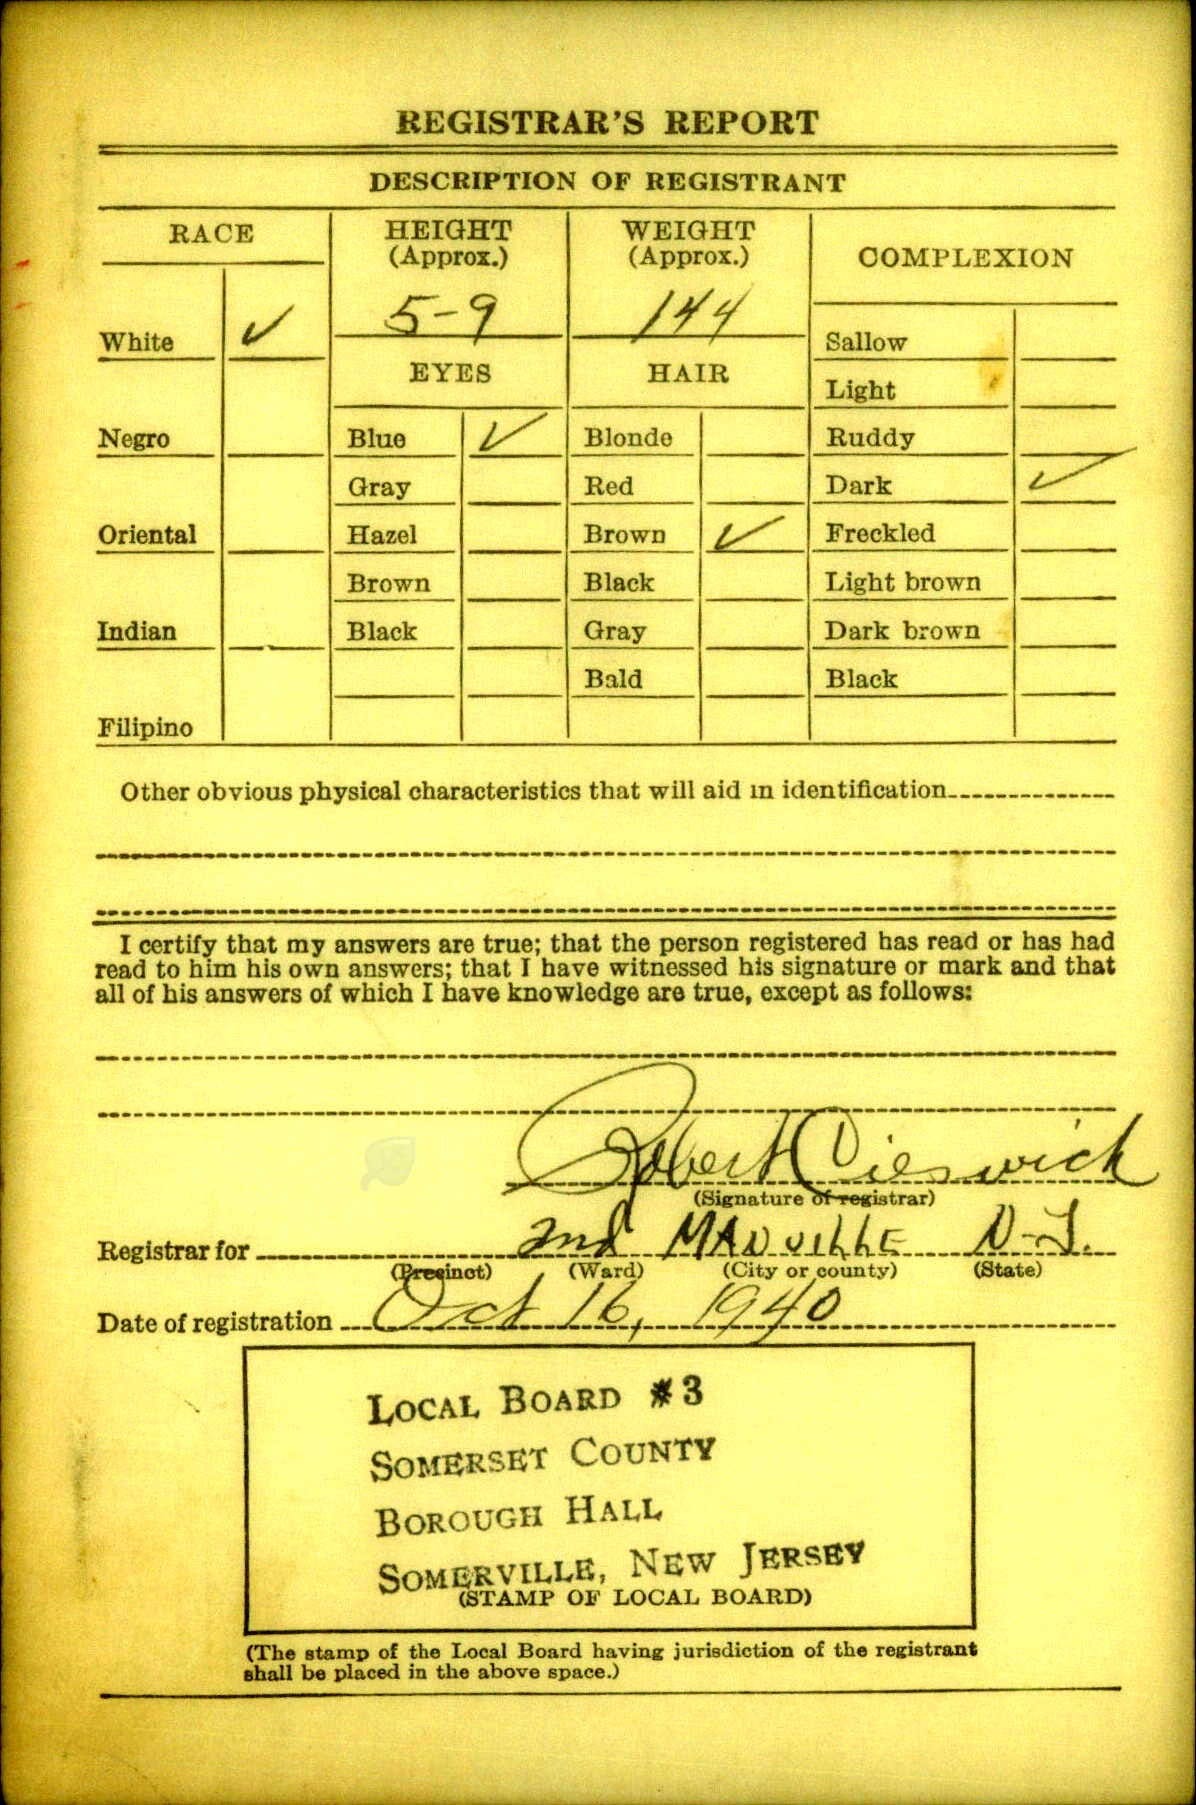 REGISTRAR'S REPORT
DESCRIPTION OF REGISTRANT
RACE
HEIGHT
(Approx.)
WEIGHT
(Approx.)
COMPLEXION
5-9
144
White ✓
EYES
HAIR
Sallow
Light
Negro
Blue ✓
Blonde
Ruddy
Gray
Red
Dark ✓
Oriental
Hazel
Brown ✓
Freckled
Brown
Black
Light brown
Indian
Black
Gray
Dark brown
Bald
Black
Filipino
Other obvious physical characteristics that will aid in identification
I certify that my answers are true; that the person registered has read or has had
read to him his own answers; that I have witnessed his signature or mark and that
all of his answers of which I have knowledge are true, except as follows:
Robert Cieswick
(Signature of registrar)
Registrar for 2nd MANVILLE N-J.
(Precinct) (Ward) (City or county) (State)
Date of registration Oct 16, 1940
LOCAL BOARD #3
SOMERSET COUNTY
BOROUGH HALL
SOMERVILLE, NEW JERSEY
(STAMP OF LOCAL BOARD)
(The stamp of the Local Board having jurisdiction of the registrant
shall be placed in the above space.)